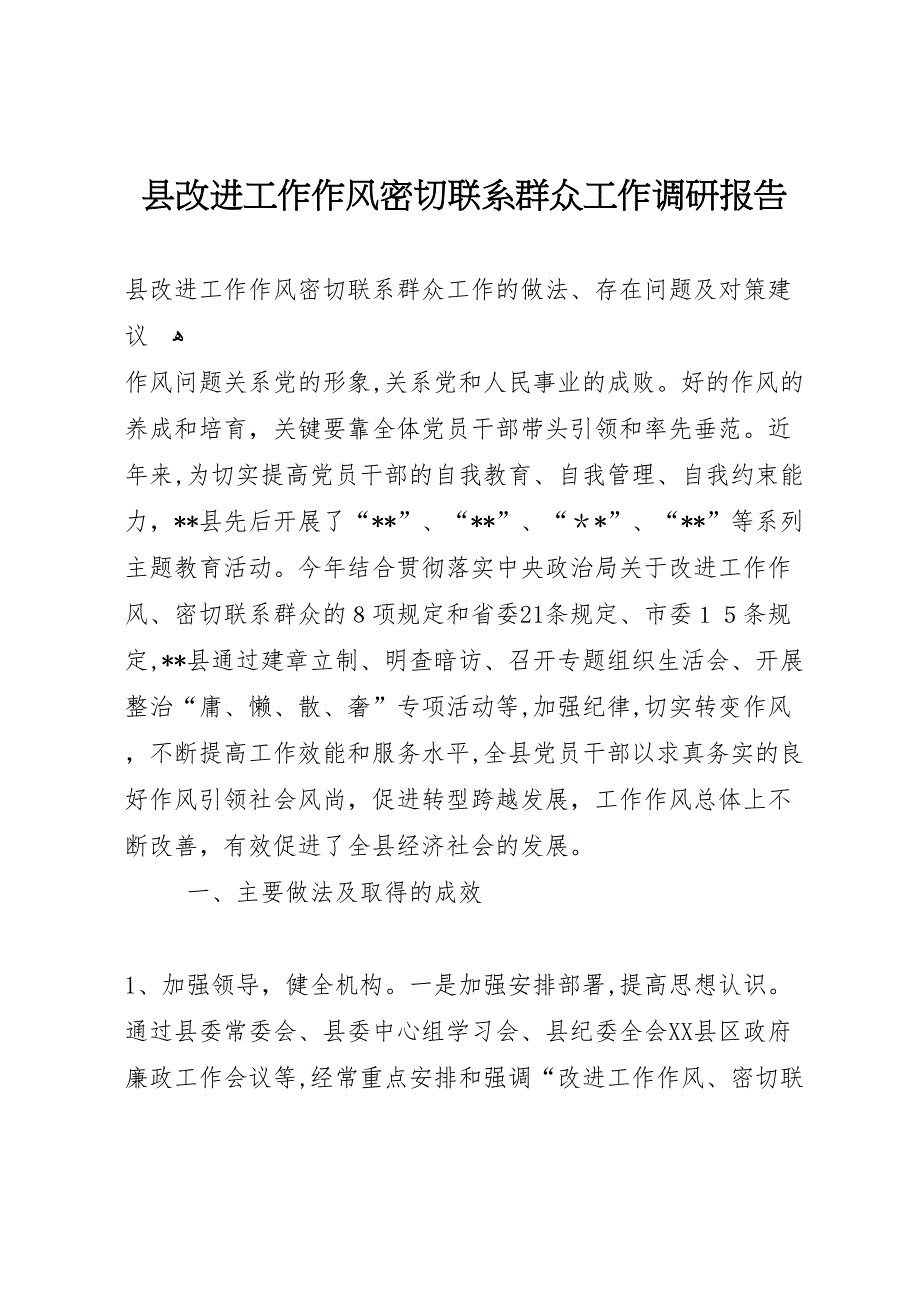 县改进工作作风密切联系群众工作调研报告
县改进工作作风密切联系群众工作的做法、存在问题及对策建
议 ﻫ
作风问题关系党的形象,关系党和人民事业的成败。好的作风的
养成和培育，关键要靠全体党员干部带头引领和率先垂范。近
年来,为切实提高党员干部的自我教育、自我管理、自我约束能
力，**县先后开展了“**”、“**”、“＊*”、“**”等系列
主题教育活动。今年结合贯彻落实中央政治局关于改进工作作
风、密切联系群众的８项规定和省委21条规定、市委１５条规
定,**县通过建章立制、明查暗访、召开专题组织生活会、开展
整治“庸、懒、散、奢”专项活动等,加强纪律,切实转变作风
，不断提高工作效能和服务水平,全县党员干部以求真务实的良
好作风引领社会风尚，促进转型跨越发展，工作作风总体上不
断改善，有效促进了全县经济社会的发展。
一、主要做法及取得的成效
1、加强领导，健全机构。一是加强安排部署,提高思想认识。
通过县委常委会、县委中心组学习会、县纪委全会XX县区政府
廉政工作会议等,经常重点安排和强调“改进工作作风、密切联